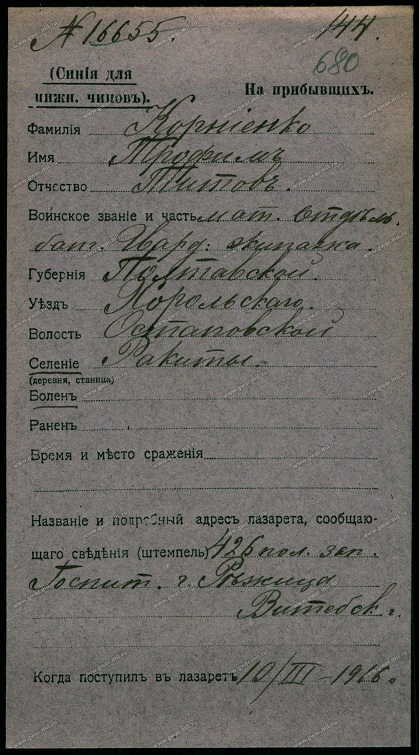 № 16655. 144.
680
(Синія для
нижн. чиновъ). На прибывшихъ.
Фамилія Корніенко
Имя Трофимъ
Отчество Титовъ.
Воинское званіе и часть мат. отдѣль.
бат. Гвард. экипажа.
Губернія Полтавской.
Уѣздъ Хорольскаго.
Волость Остаповской
Селеніе Ракиты.
(деревня, станица)
Боленъ
Раненъ
Время и мѣсто сраженія
Названіе и подробный адресъ лазарета, сообщаю-
щаго свѣдѣнія (штемпель) 426 пол. зап.
Госпит. г. Рѣжица
Витебск. г.
Когда поступилъ въ лазаретъ 10/III - 1916 г.